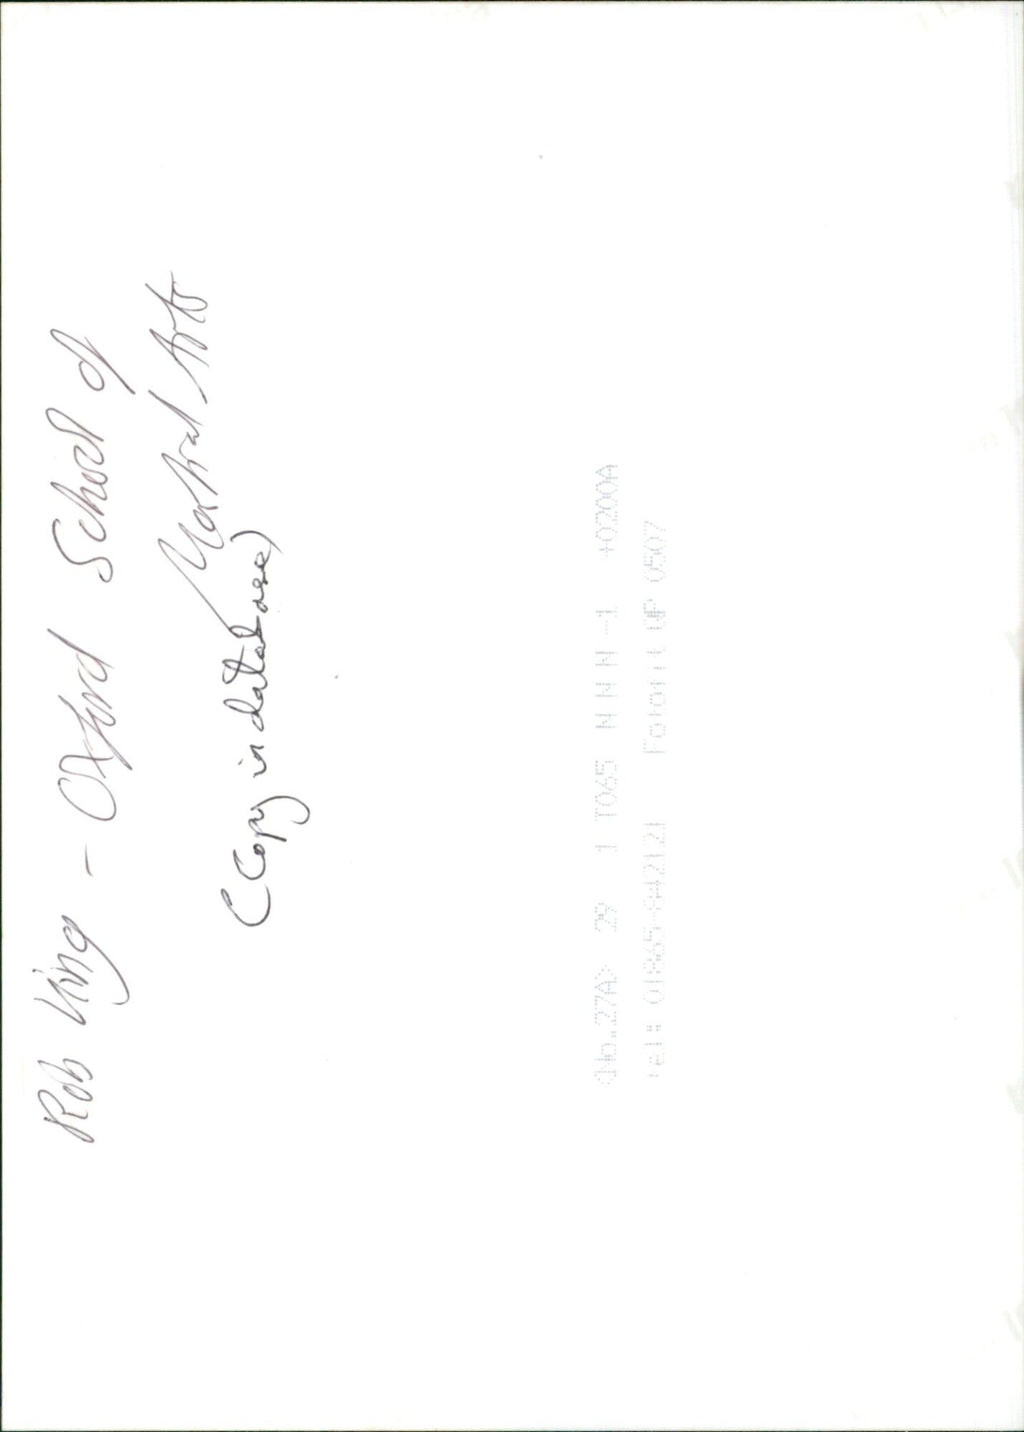 Rob King - Oxford School of
Martial Arts
(Copy in database)
<No.27A> 29 1 T065 N N N-1 +0200A
tel: 01865-842121 0507